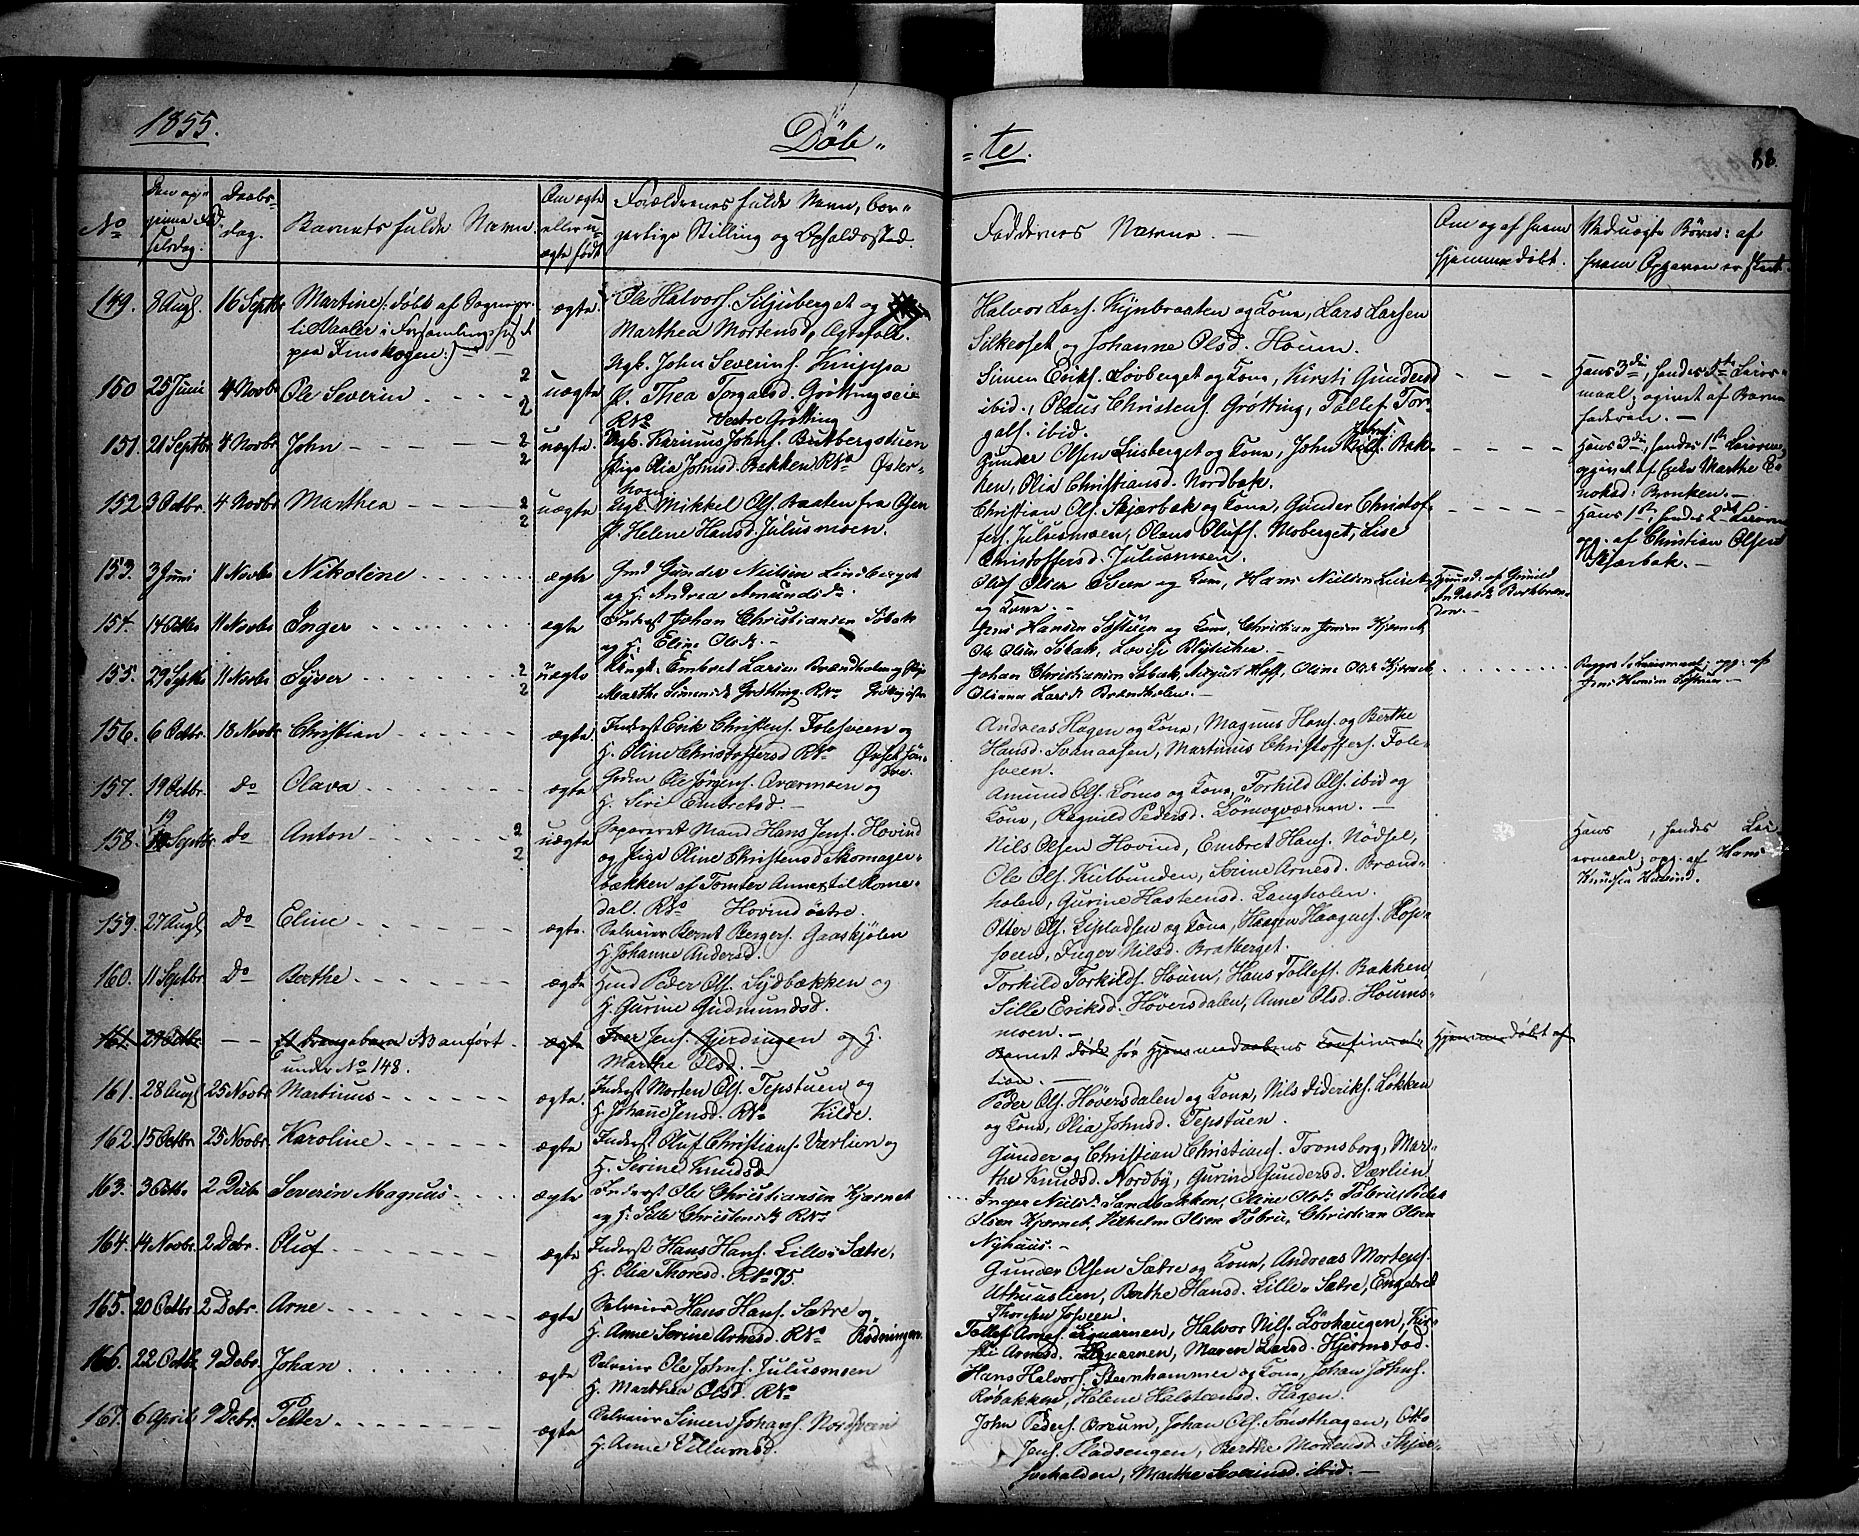 1855.
Döb-
-te.
88
No
Den op-
givne Fød-
selsdag.
Daabs-
dag.
Barnets fulde Navn.
Om ægte
eller u-
ægte født
Forældrenes fulde Navn, bor-
gerlige Stilling og Opholdssted.
Faddernes Navne. —
Om og af hvem
hjemmedøbt.
Ved uægte Børn: af
hvem Opgaven er skeet.
149. 8 Augs. 16 Septbr Martine (: døbt af Sognepr.
i Vaaler i Forsamlingshuset
paa Finskogen :)
ægte
Ole Halvors. Siljuberget og
Marthea Mortensd, Ægtefolk.
Halvor Lars. Kynbraaten og Kone, Lars Larsen
Silkeset og Johanne Olsd. Houm.
150 25 Juni 4 Novbr Ole Severin - - - - 2 2 uægte
Ugk. John Severins. Knippa
P. Thea Torgalsd. Grøttingseie
RNo Vestre Grøtting
Simen Eriks. Løvberget og Kone, Kirsti Gundersd
ibid., Olaus Christens. Grøtting, Tollef Tor-
gals. ibid.
Hans 3die, hendes 3die Leier-
maal; opgivet af Barne-
faderen. —
151. 21 Septbr 4 Novbr John - - - - 2 2 uægte.
Ugk. Karinus Johns. Butbergstuen
Pige Olia Johnsd. Bakken RNo Øster-
houm
Gunder Olsen Liisberget og Kone, John Bak-
ken, Olia Christiansd. Nordbak.
Hans 3die, hendes 1ste Leierm.
opgivet af Enke Marthe
Broken. —
152 3 Octbr. 4 Novbr Marthea - - - - 2 2 uægte
Ugk. Mikkel Ols. Braaten fra Osen
P. Helene Hansd. Julusmoen.
Christian Ols. Skjærbak og Kone, Gunder Christof-
fers. Julusmoen, Olaus Olufs. Moberget, Lise
Christoffersd. Julusmoen.
Hans 1ste, hendes 2det Leierm.
opg. af Christian Olsen
Skjærbak. —
153. 3 Juni 11 Novbr Nikoline - - - - ægte
Gmd Gunder Nielsen Lindberget
og H. Andrea Amundsdr.
Oluf Olsen Sveen og Kone, Hans Nielsen
og Kone. —
Hjemd. af Gunild
154. 14 Octbr 11 Novbr Inger - - - - ægte
Inderst Johan Christiansen Søbak
og H. Eline Olsdr. —
Jens Hansen Søstuen og Kone, Christian Jensen Kjernet,
Ole Olsen Søbak, Lovise
155. 29 Septbr 11 Novbr Syver - - - - 2 2 uægte
Ungk. Embret Larsen Brændholen og Pige
Marthe Simensdr Grøtting RNo
Johan Christiansen Søbak, August Hoff, Oline Olsdr Kjernet,
Oliana Larsdr Brændholen. —
Begges 1ste Leiermaal; opg: af
Jens Hansen Søstuen —
156. 6 Octbr. 18 Novbr Christian - - - - ægte
Inderst Erik Christens. Folesveen og
H. Oline Christoffersd RNo
Andreas Hagen og Kone, Magnus Hans. og Berthe
Hansd. Svenaasen, Martinus Christoffers. Fole-
sveen.
157. 19 Octbr. do Olava - - - - ægte
Gmd Ole Jørgens. Qværnmoen og
H. Siri Embretsd. —
Amund Ols. Löms og Kone, Torkild Ols. ibid og
Kone, Ragnild Pedersd. Lömoqværnen. —
158. 19 Septbr do Anton - - - - 2 2 uægte
Separeret Mand Hans Jens. Hovind
og Pige Oline Christensd Skomager-
bækken af Tomter Annex til Rome-
dal. RNo Hovind östre.
Nils Olsen Hovind, Embret Hans. Nödsel,
Ole Ols. Kulbunden, Serine Arnesd. Brænd-
holen, Gurine Hasteensd. Langholen.
Hans , hendes Lei-
ermaal; opg. af Hans
Knudsen Hovind.
159. 27 Augs. Do Eline - - - - ægte.
Selveier Bernt Bergers. Gaaskjølen
H. Johanne Andersd.
Otter Ols. Lisladsen og Kone, Haagen Haagens. Rop-
sveen, Inger Nilsd. Brakberget.
160. 11 Septbr. Do Berthe - - - - ægte
Huusm. Peder Ols. Sydbækken og
H. Gurine Gudmundsd.
Torkild Torkilds. Houm, Hans Tollefs. Bakken,
Sille Eriksd. Höversdalen, Anne Olsd. Houms-
moen. —
161. 29 Octbr. — — Et Drengebarn Anført
under No 148.
ægte
Iver Jens. Gjerdingen og H.
Marthe Olsd. —
Barnet døde før Hjemmedaabens Confirma-
tion. —
Hjemmedøbt af
161. 28 Augs 25 Novbr Martinus - - - - ægte.
Inderst Morten Ols. Tepstuen og
H. Johane Jensd. RNo Kilde.
Peder Ols. Höversdalen og Kone, Nils Dideriks. Løkken
og Kone, Olia Johnsd. Tepstuen.
162. 15 Octbr 25 Novbr Karoline - - - - ægte
Inderst Oluf Christians. Værlien og
H. Serine Knudsd
Gunder og Christian Christians. Tronsborg, Mar-
the Knudsd. Nordby, Gurine Gundersd. Værlien.
163. 3 Octbr. 2 Debr Severin Magnus - - - - ægte
Inderst Ole Christiansen Kjernet
og H. Sille Christensdr RNo
Inger Nielsdr Sandbakken, Oline Olsdr Peder
Olsen Kjernet, Vilhelm Olsen Christian Olsen
Nyhuus. —
164. 14 Novbr. 2 Debr. Oluf - - - - ægte
Inderst Hans Hans. Lille-Sætre,
H. Olia Thoresd. RNo 75
Gunder Olsen Sætre og Kone, Andreas Mortens.
Athuuslien, Berthe Hansd. Lille-Sætre, Engebret
Thorsen Josveen.
165. 20 Octbr. 2 Debr. Arne - - - - ægte
Selveier Hans Hans. Sætre og
H. Anne Serine Arnesd. RNo Rödningen.
Tollef Arnes. Liqværnen, Halvor Nils. Lövhaugen, Kir-
sti Arnesd. Liqværnen, Maren Larsd. Hjermstad.
166. 22 Octbr 9 Debr. Johan - - - - ægte
Selveier Ole Johns. Julusmoen
H. Marthea Olsd. RNo
Hans Halvors. Steenhammer og Kone, Johan Johns.
Robakken, Helene Halstensd. Hagen.
167. 6 April 9 Debr. Petter - - - - ægte
Selveier Simen Johans. Nordsveen
H. Anne Villumsd.
John Peders. Breum, Johan Ols. Sønsthagen, Otto
Jens. Pladsengen, Berthe Mortensd. Skjær-
Marthe Severinsd. ibid. —